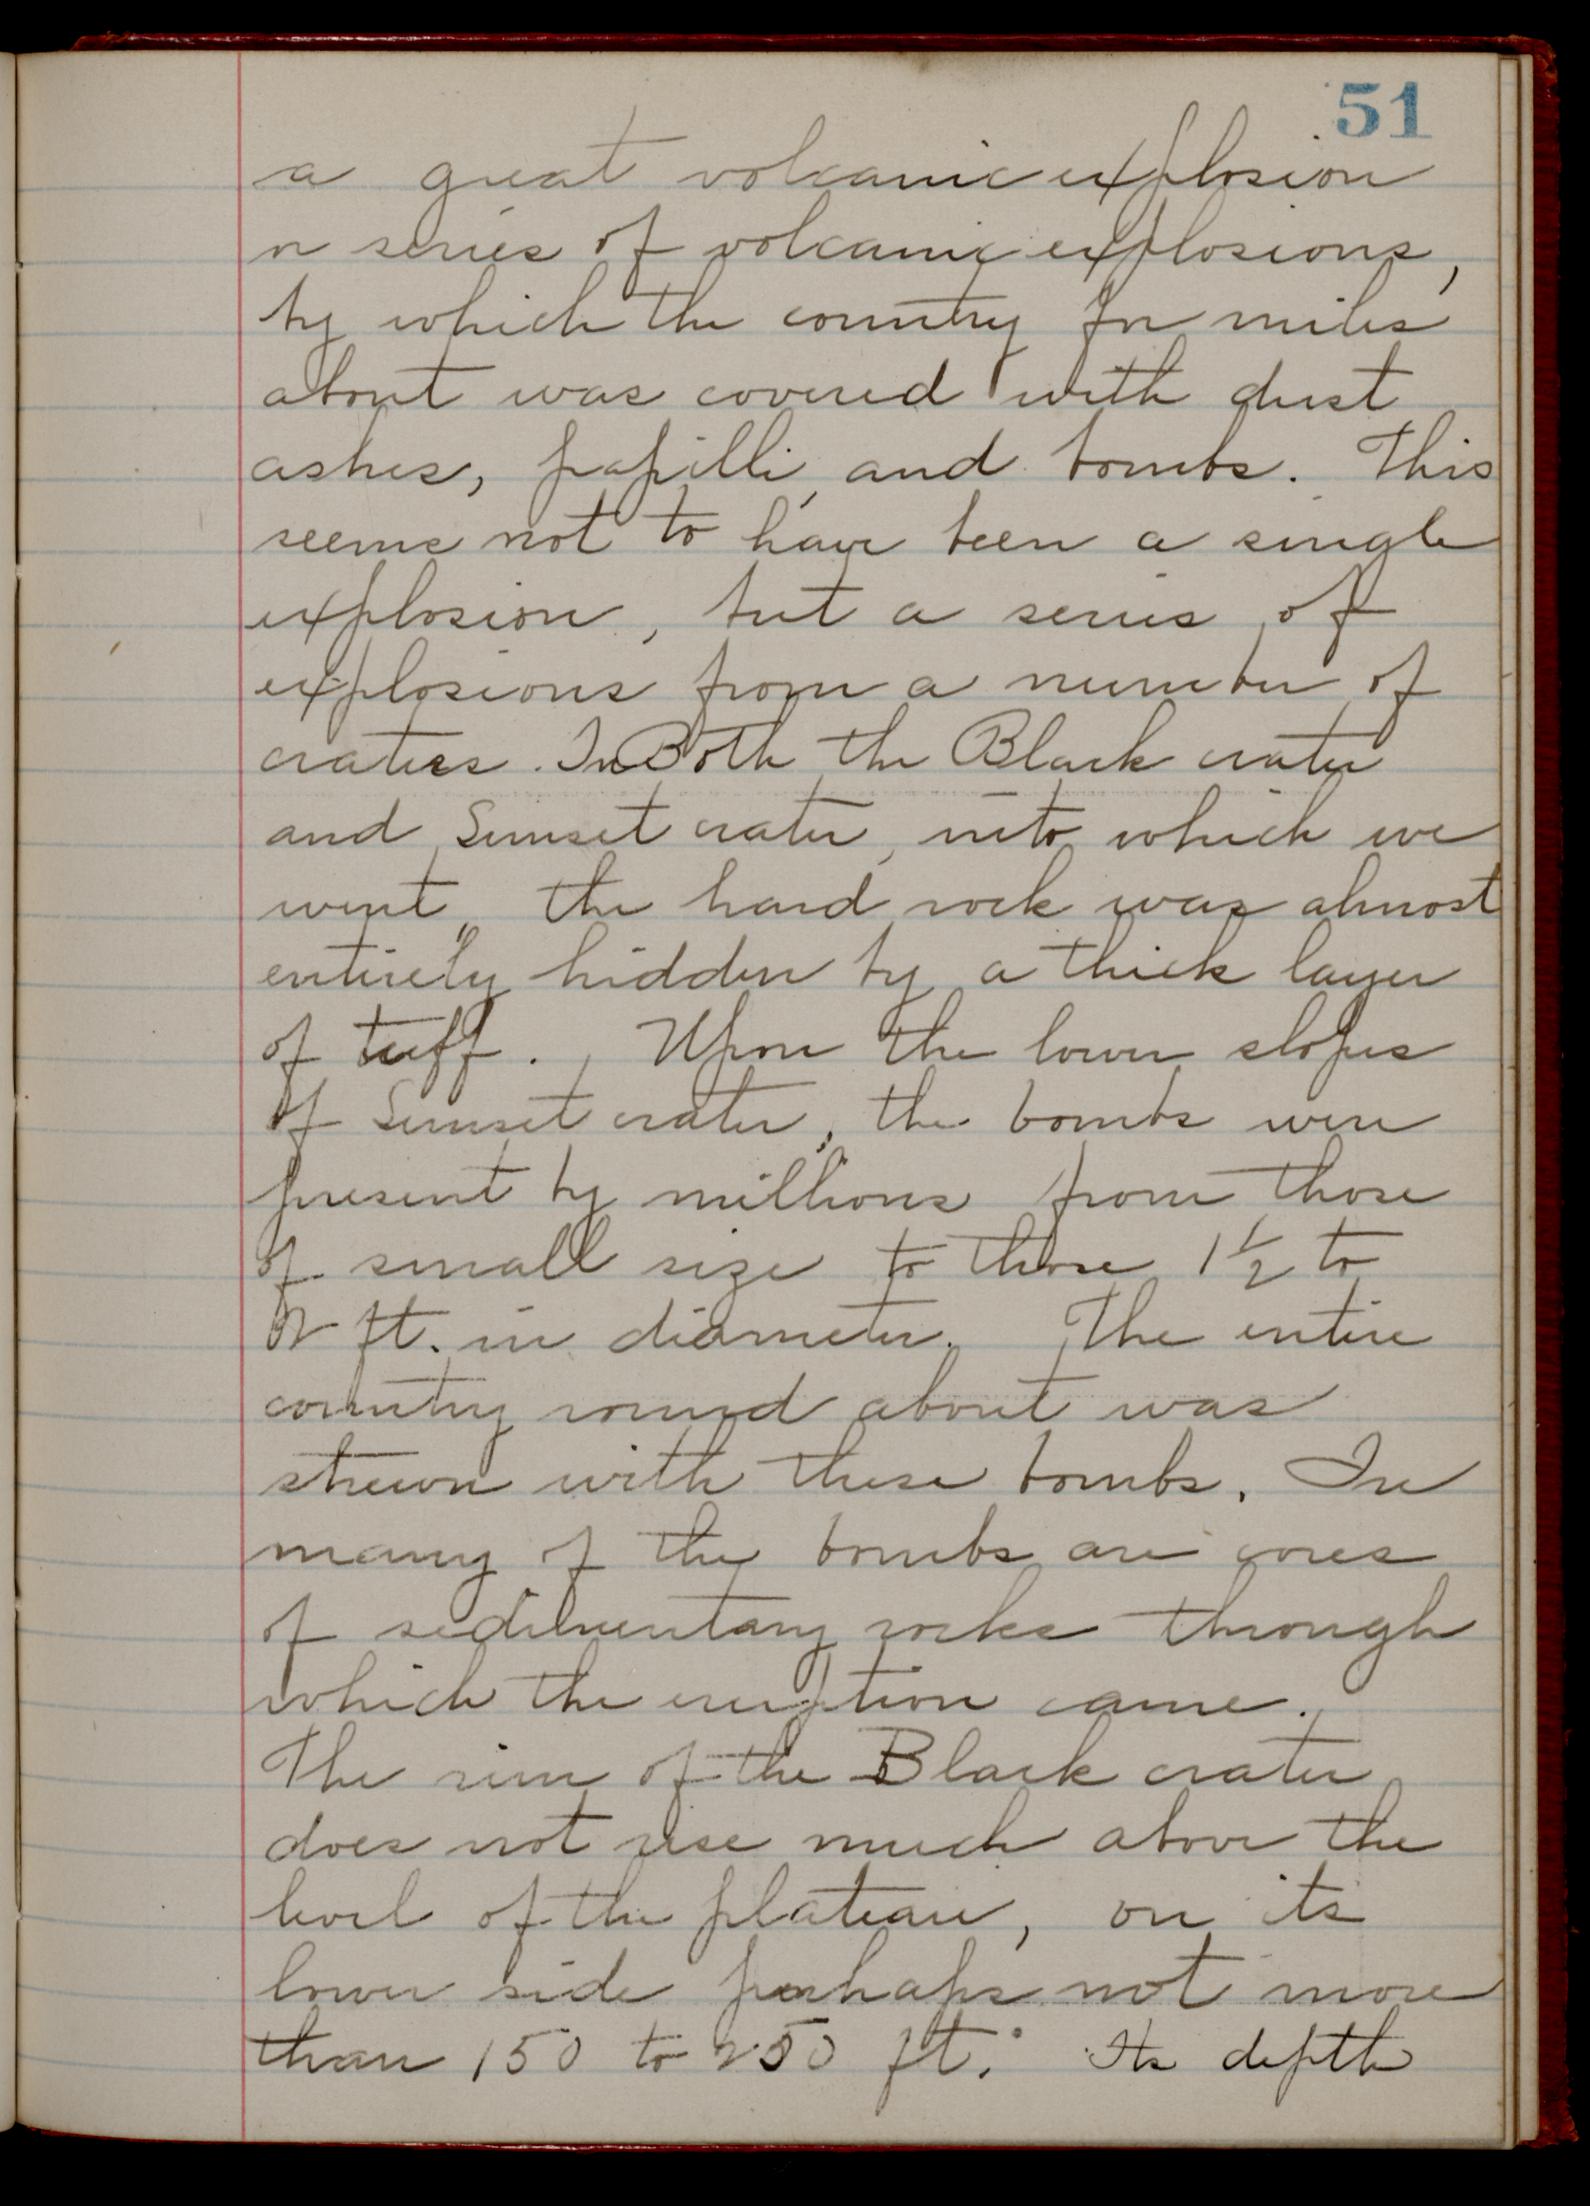 51
a great volcanic explosion
or series of volcanic explosions,
by which the country for miles
about was covered with dust
ashes, papilli, and bombs. This
seems not to have been a single
explosion, but a series of
explosions from a number of
craters. In Both the Black crater
and Sunset crater, into which we
went, the hard rock was almost
entirely hidden by a thick layer
of tuff. Upon the lower slopes
of Sunset crater, the bombs were
present by millions from those
of small size to those 1½ to
2 ft. in diameter. The entire
country round about was
strewn with these bombs. In
many of the bombs are cores
of sedimentary rocks through
which the eruption came.
The rim of the Black crater
does not rise much above the
level of the plateau, on its
lower side perhaps not more
than 150 to 250 ft. Its depth